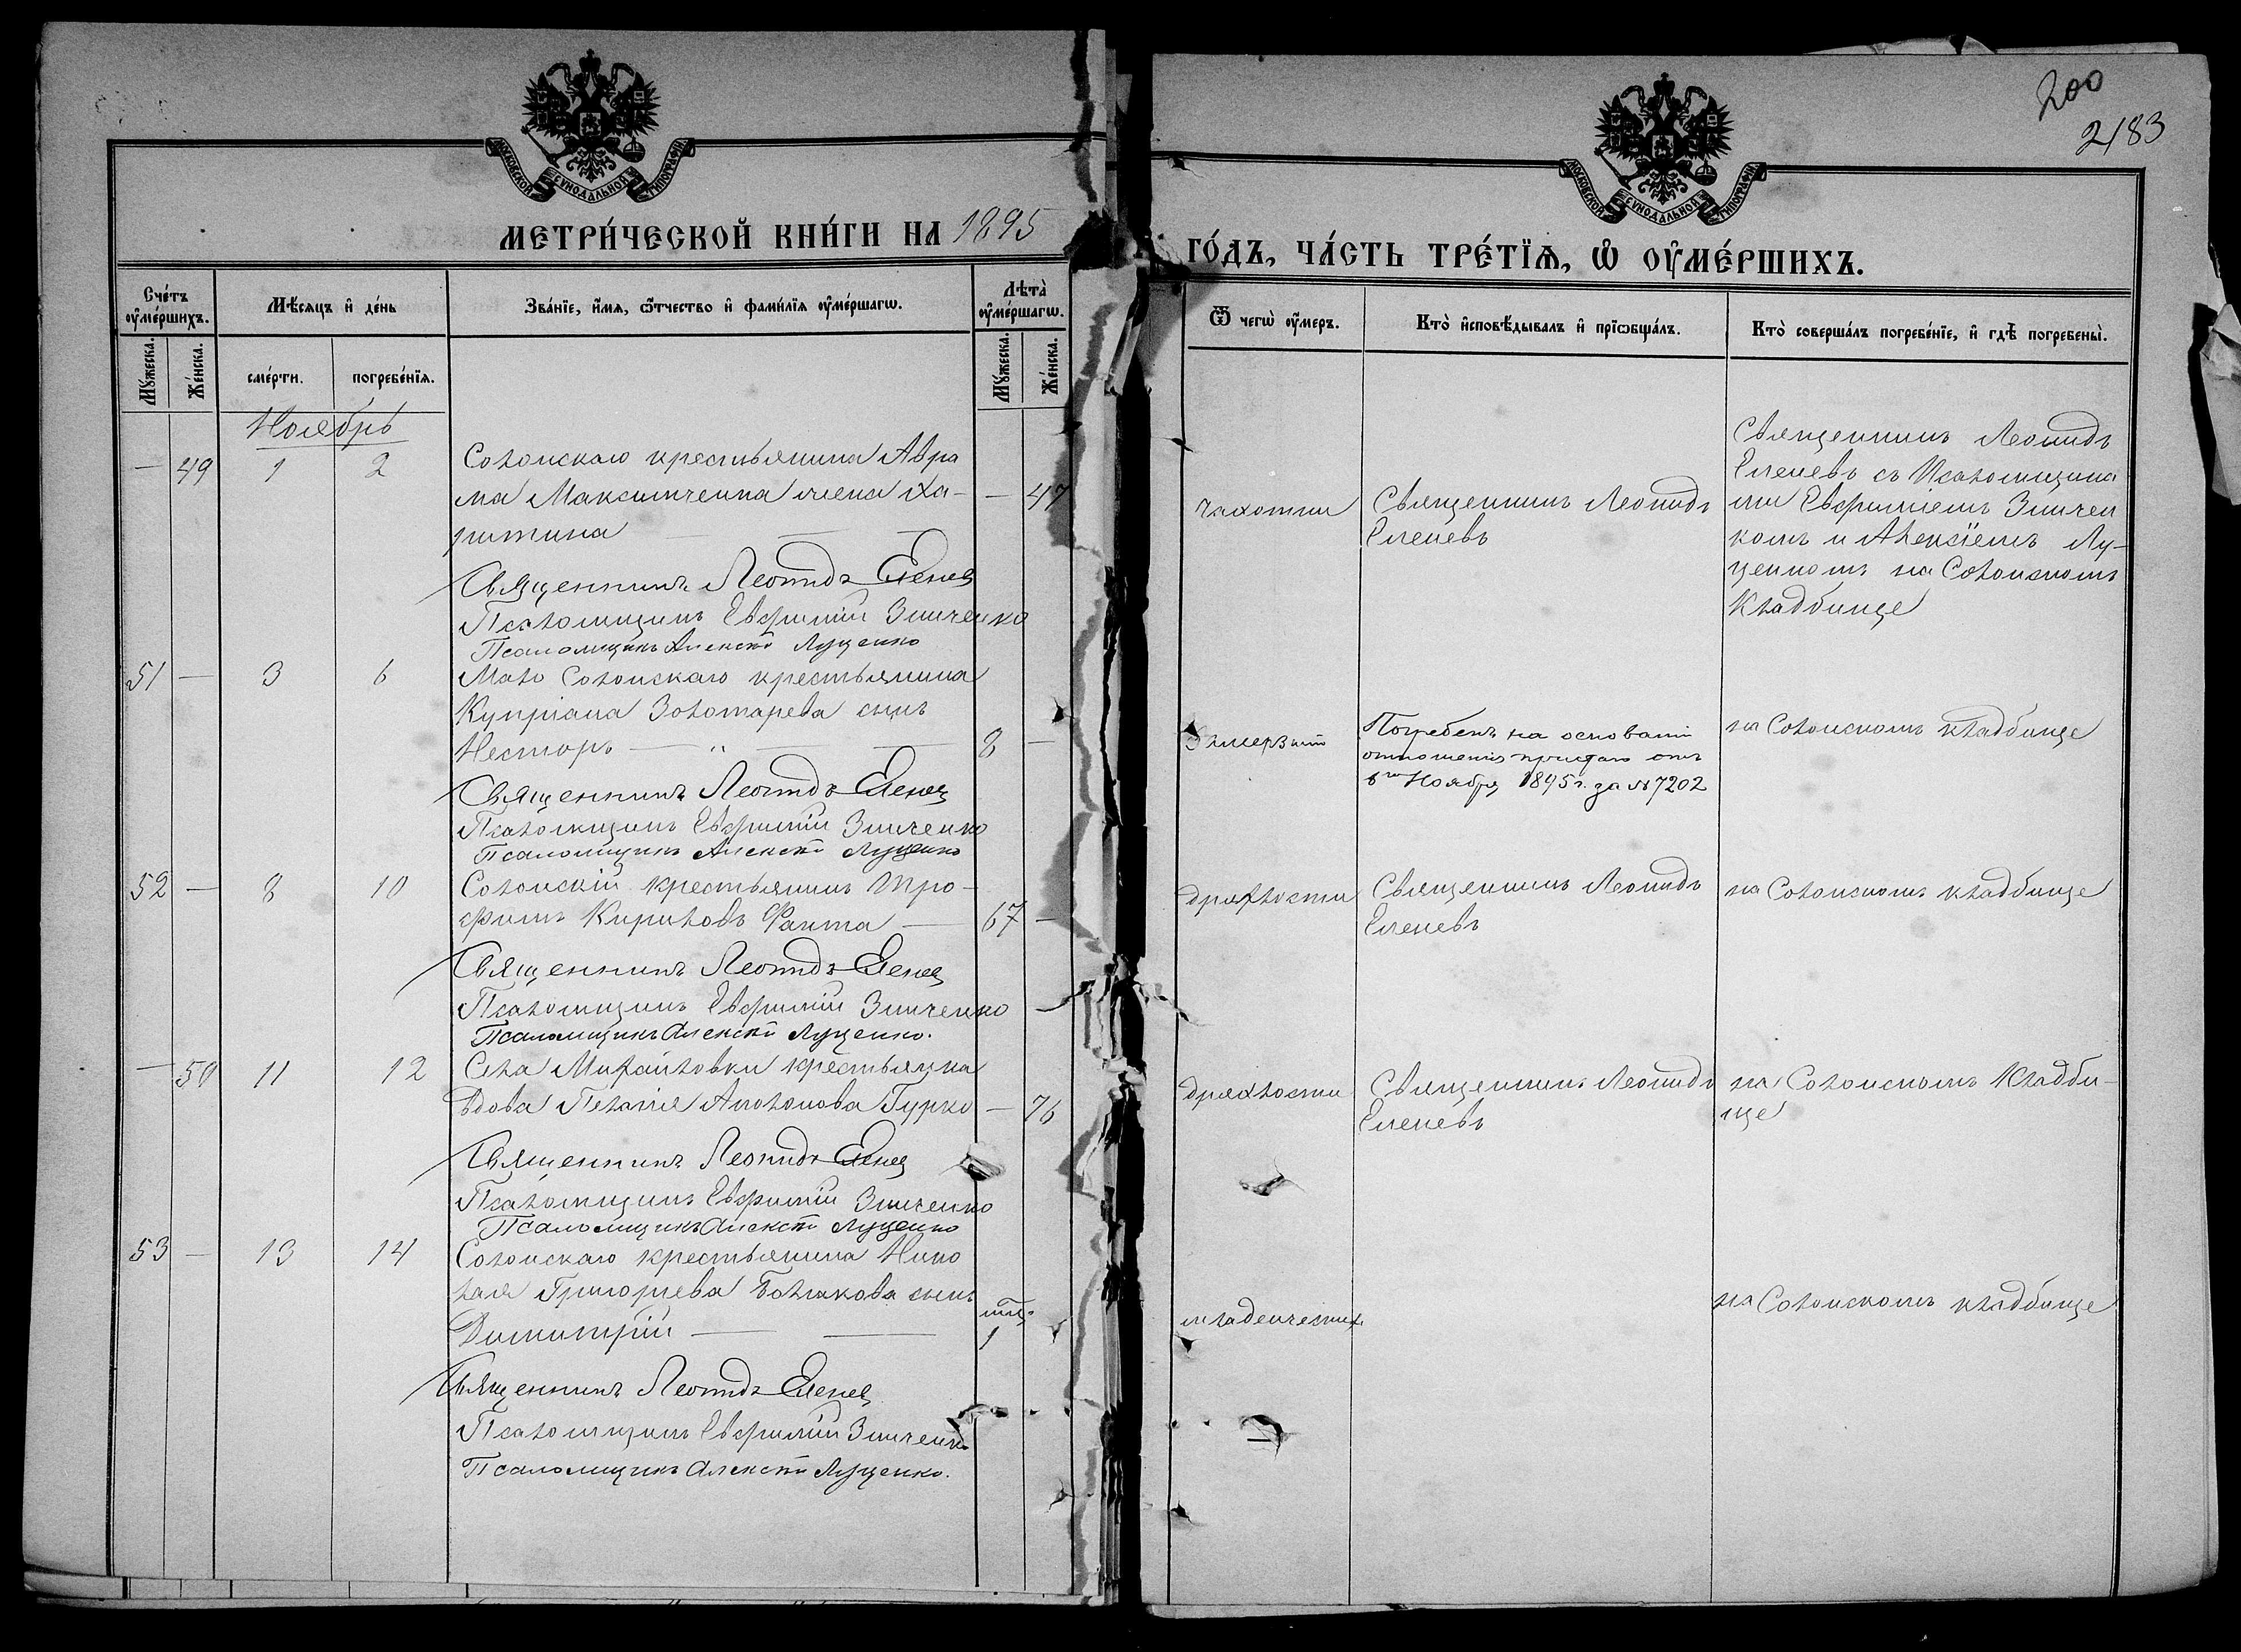 200
2183
МОСКОВСКОЙ СѴНОДАЛЬНОЙ ТИПОГРАФІИ
МОСКОВСКОЙ СѴНОДАЛЬНОЙ ТИПОГРАФІИ
МЕТРИ́ЧЕСКОЙ КНИ́ГИ НА 1895
ГО́ДЪ, ЧА́СТЬ ТРЕ́ТЇѦ, Ѡ҆ ОУ҆МЕ́РШИХЪ.
Сче́тъ оу҆ме́ршихъ.
Мꙋ́жеска.
Же́нска.
Мѣ́сяцъ и҆ де́нь
сме́рти.
погребе́нїѧ.
Зва́нїе, и҆́мѧ, ѻ҆́тчество и҆ фами́лїѧ оу҆ме́ршагѡ.
Лѣ́та оу҆ме́ршагѡ.
Мꙋ́жеска.
Же́нска.
Ѿ чегѡ̀ оу҆́меръ.
Кто̀ и҆сповѣ́дывалъ и҆ прїѡбща́лъ.
Кто̀ соверша́лъ погребе́нїе, и҆ гдѣ̀ погребены̀.
Ноябрь
— 49 1 2
Солонскаго крестьянина Авра
ма Максимченка жена Ха-
ритина
— 47
чахотки
Священникъ Леонидъ
Еленевъ
Священникъ Леонидъ
Еленевъ съ Псаломщика
ми Евфиміемъ Зинчен
комъ и Алексіемъ Лу-
ценкомъ на Солонскомъ
Кладбище
Священникъ Леонидъ Еленев
Псаломщикъ Евфимій Зинченко
Псаломщикъ Алексѣй Луценко
51 — 3 6
Мало Солонскаго крестьянина
Купріана Золотарева сынъ
Несторъ — „ —
8 —
Погребенъ на основаніи
отношенія пристава отъ
6го Ноября 1895 г. за № 7202
на Солонскомъ кладбище
Священникъ Леонидъ Еленев
Псаломщикъ Евфимій Зинченко
Псаломщикъ Алексѣй Луценко
52 — 8 10
Солонскій крестьянинъ Тро-
фимъ Кириловъ Факта
67 —
дряхлости
Священникъ Леонидъ
Еленевъ
на Солонскомъ кладбище
Священникъ Леонидъ Еленев
Псаломщикъ Евфимій Зинченко
Псаломщикъ Алексѣй Луценко.
— 50 11 12
Села Михайловки крестьянка
Вдова Пелагія Антонова Гурко
— 76
дряхлости
Священникъ Леонидъ
Еленевъ
на Солонскомъ Кладби-
ще
Священникъ Леонидъ Еленев
Псаломщикъ Евфимій Зинченко
Псаломщикъ Алексѣй Луценко
53 — 13 14
Солонскаго крестьянина Нико
лая Григорьева Болжкова сынъ
Димитрій
1
младенческих
на Солонскомъ кладбище
Священникъ Леонидъ Еленев
Псаломщикъ Евфимій Зинченко
Псаломщикъ Алексѣй Луценко.